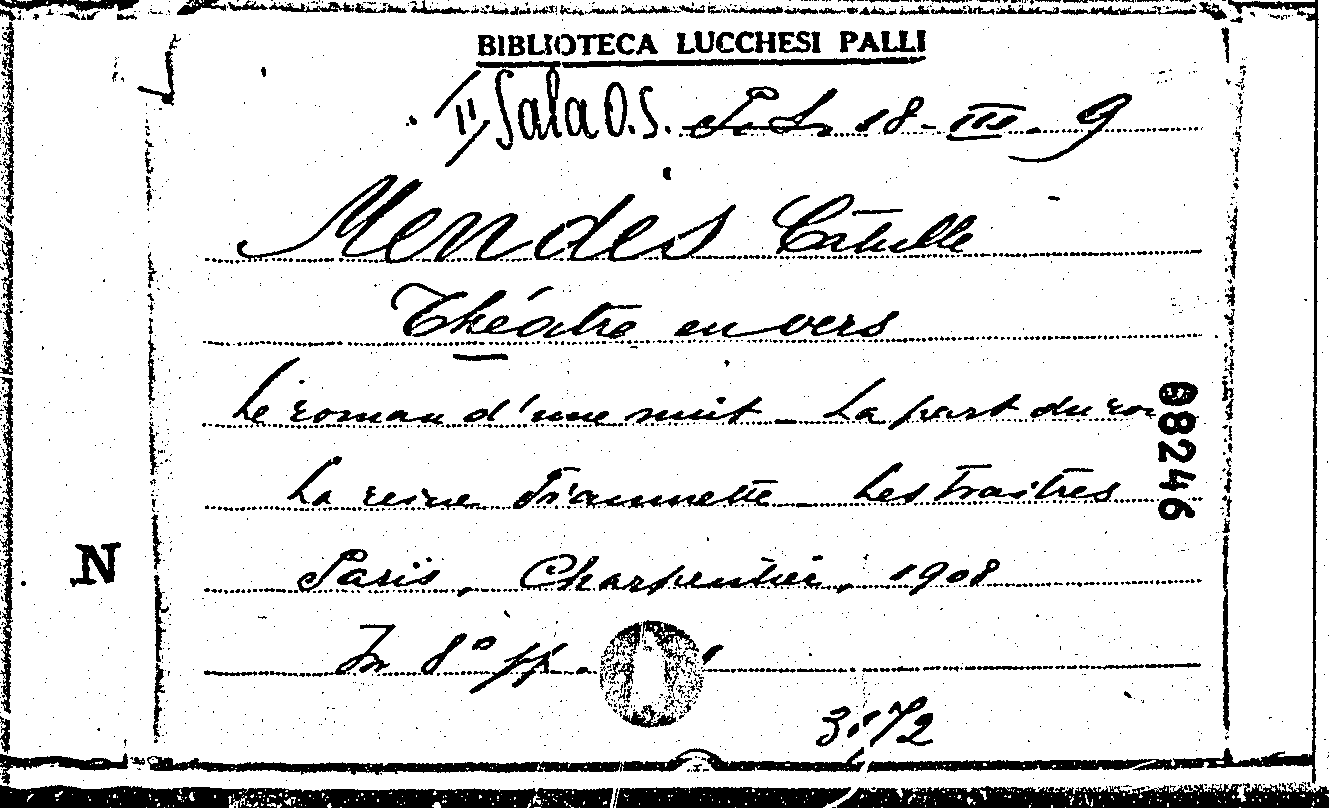 BIBLIOTECA LUCCHESI PALLI
II Sala O.S. P. S. 18 - III. 9
Mendes Catulle
Théatre en vers
Le roman d'une nuit - La part du roi
La reine Fiammette - Les Traitres
08246
N
Paris, Charpentier, 1908
In 8° pp.